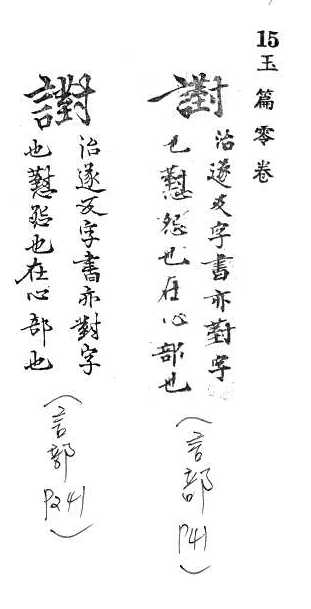 15玉篇零卷
治遂反字書亦對字
也懟怨也在心部也
(言部 P41)
治遂反字書亦對字
也懟怨也在心部也
(言部 P241)